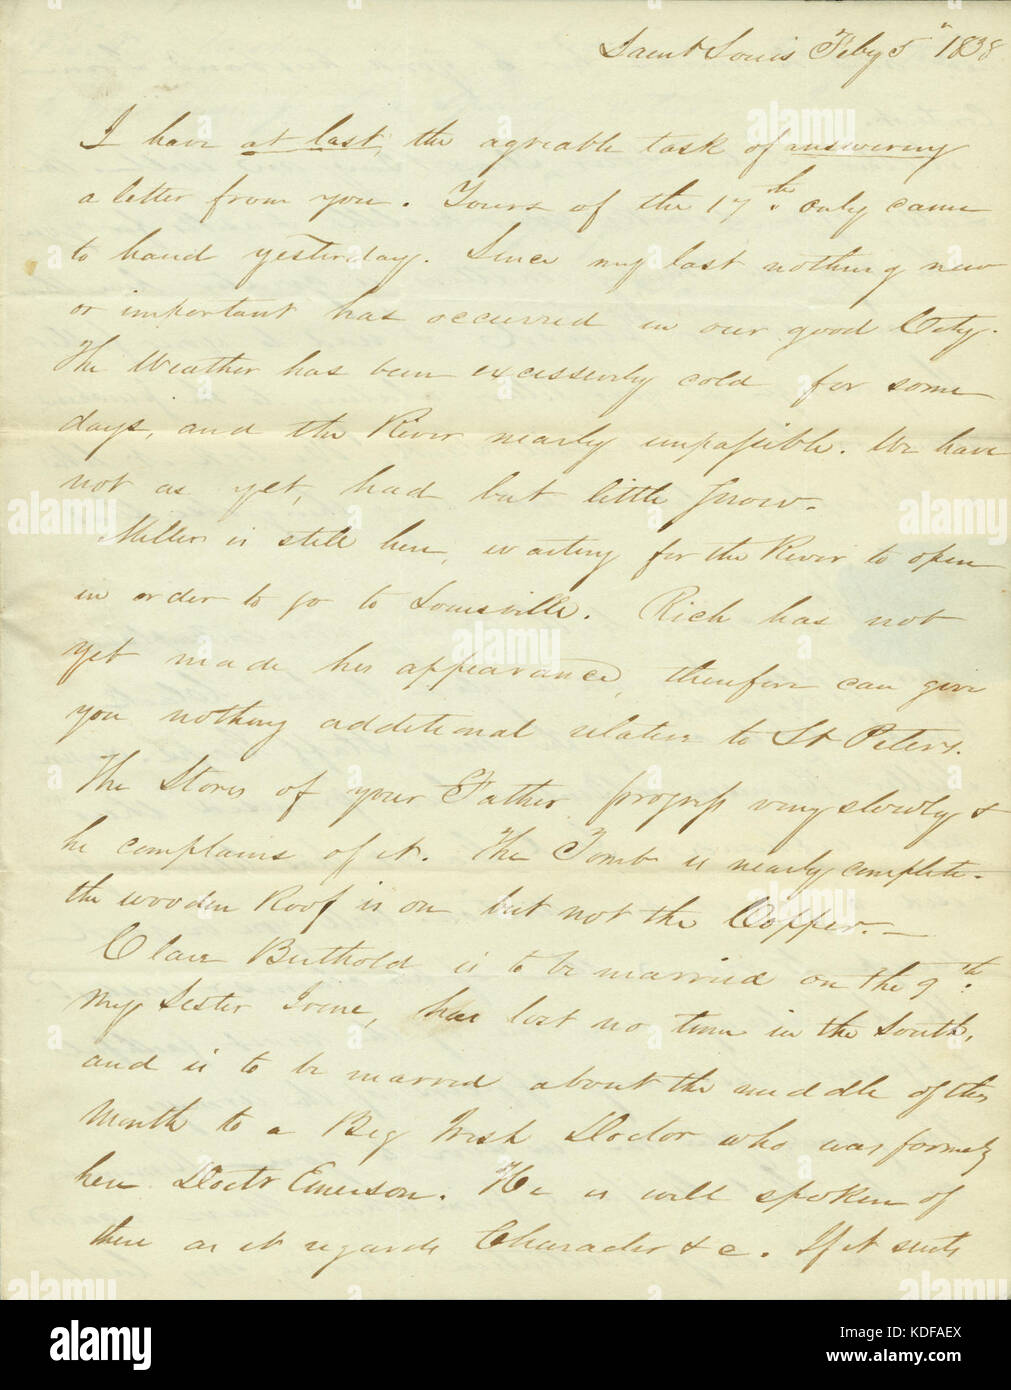 Saint Louis Feby 5" 1838
I have at last, the agreable task of answering
a letter from you. Yours of the 17th. only came
to hand yesterday. Since my last nothing new
or important has occurred in our good City.
The Weather has been excessively cold for some
days, and the River nearly impassible. We have
not as yet, had but little Snow.
Miller is still here, waiting for the River to open
in order to go to Louisville. Rich has not
yet made his appearance, therefore can give
you nothing additional relative to St Peters.
The Stores of your Father progress very slowly &
he complains of it. The Tomb is nearly complete.
the wooden Roof is on, but not the Copper. —
Clara Berthold is to be married on the 9th.
My Sister Irine, has lost no time in the South,
and is to be married about the middle of this
Month to a Big Irish Doctor who was formely
here Doctr Emerson. He is well spoken of
there as it regards Character & c. If it suits
alamy
alamy stock photo
a
alamy
www.alamy.com
Image ID: KDFAEX